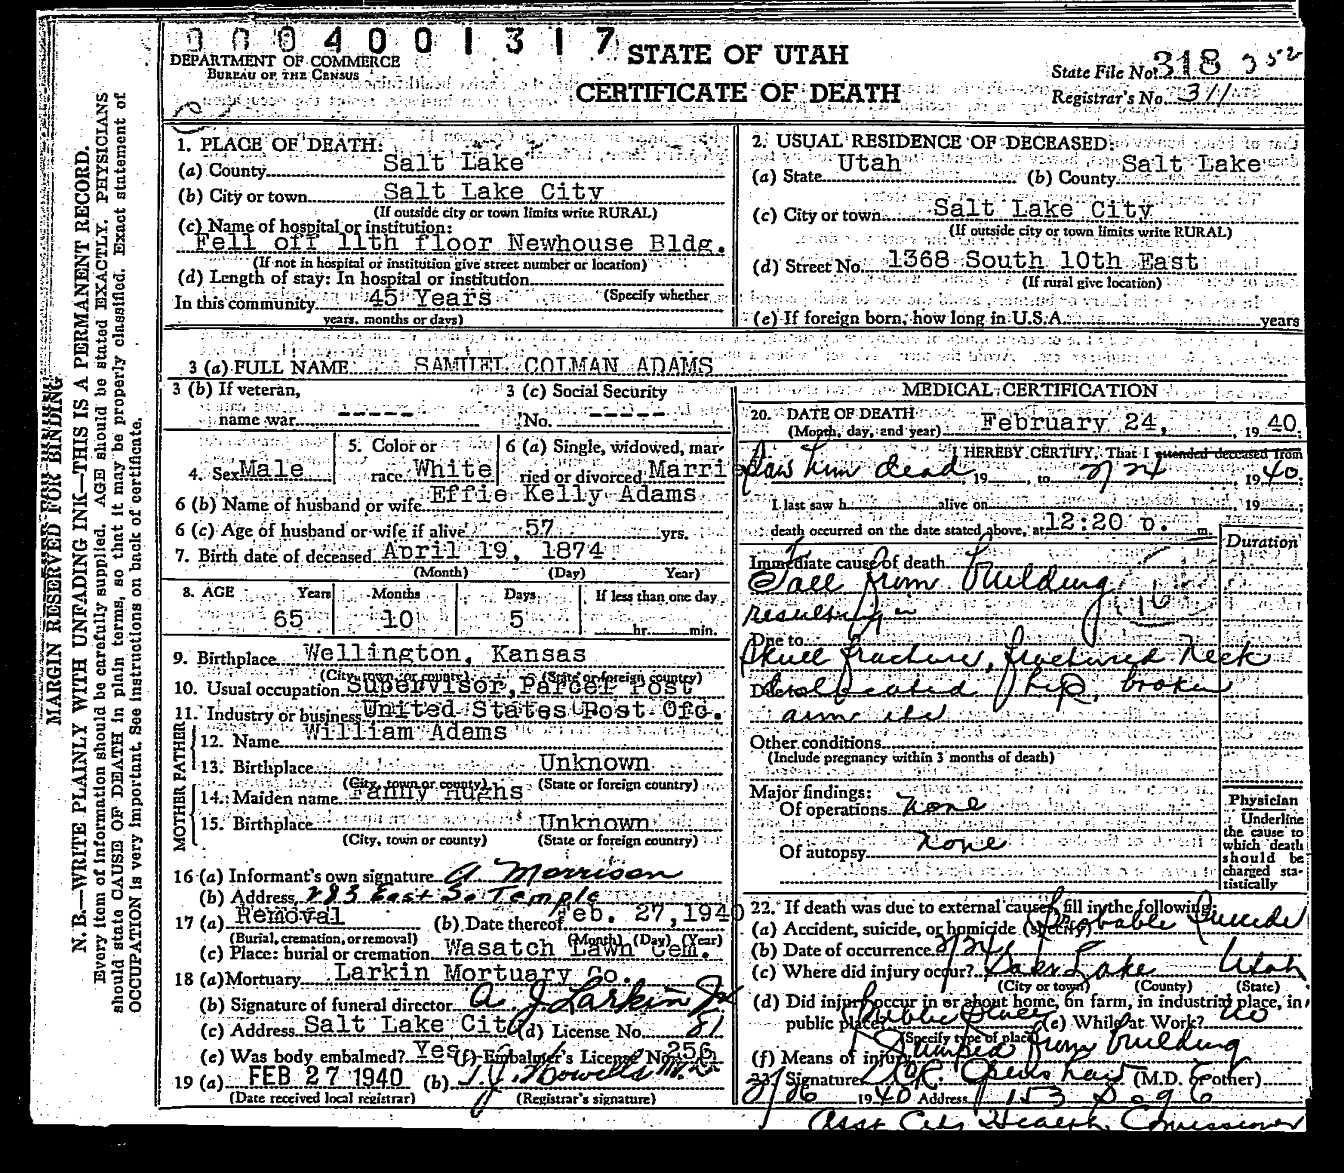 0004001317
DEPARTMENT OF COMMERCE
BUREAU OF THE CENSUS
STATE OF UTAH
CERTIFICATE OF DEATH
State File No. 318 352
Registrar's No. 311
MARGIN RESERVED FOR BINDING
N. B.—WRITE PLAINLY WITH UNFADING INK—THIS IS A PERMANENT RECORD.
Every item of information should be carefully supplied. AGE should be stated EXACTLY. PHYSICIANS
should state CAUSE OF DEATH in plain terms, so that it may be properly classified. Exact statement of
OCCUPATION is very important. See instructions on back of certificate.
1. PLACE OF DEATH:
(a) County Salt Lake
(b) City or town Salt Lake City
(If outside city or town limits write RURAL)
(c) Name of hospital or institution:
Fell off 11th floor Newhouse Bldg.
(If not in hospital or institution give street number or location)
(d) Length of stay: In hospital or institution
In this community 45 Years (Specify whether
years, months or days)
2. USUAL RESIDENCE OF DECEASED:
(a) State Utah (b) County Salt Lake
(c) City or town Salt Lake City
(If outside city or town limits write RURAL)
(d) Street No. 1368 South 10th East
(If rural give location)
(e) If foreign born, how long in U.S.A. years
3 (a) FULL NAME SAMUEL COLMAN ADAMS
3 (b) If veteran,
name war -----
3 (c) Social Security
No. -----
4. Sex Male
5. Color or
race White
6 (a) Single, widowed, mar-
ried or divorced Marri
6 (b) Name of husband or wife Effie Kelly Adams
6 (c) Age of husband or wife if alive 57 yrs.
7. Birth date of deceased April 19, 1874
(Month) (Day) Year)
8. AGE Years Months Days If less than one day
65 10 5 hr. min.
9. Birthplace Wellington, Kansas
(City, town or county) (State or foreign country)
10. Usual occupation Supervisor, Parcel Post
11. Industry or business United States Post Ofc.
FATHER
12. Name William Adams
13. Birthplace Unknown
(City, town or county) (State or foreign country)
MOTHER
14. Maiden name Fanny Hughs
15. Birthplace Unknown
(City, town or county) (State or foreign country)
16 (a) Informant's own signature A. Morrison
(b) Address 283 East So. Temple
17 (a) Removal (b) Date thereof Feb. 27, 1940
(Burial, cremation, or removal) (Month) (Day) (Year)
(c) Place: burial or cremation Wasatch Lawn Cem.
18 (a) Mortuary Larkin Mortuary Co.
(b) Signature of funeral director A J Larkin Jr
(c) Address Salt Lake City (d) License No. 81
(e) Was body embalmed? Yes (f) Embalmer's License No. 256
19 (a) FEB 27 1940 (b) T. J. Howells M.D.
(Date received local registrar) (Registrar's signature)
MEDICAL CERTIFICATION
20. DATE OF DEATH February 24, 1940.
(Month, day, and year)
I HEREBY CERTIFY, That I attended deceased from
Saw him dead, 19 , to 2/24, 1940.
I last saw h alive on , 19 ;
death occurred on the date stated above, at 12:20 p. m.
Duration
Immediate cause of death
Fall from building
resulting in
Due to
Skull fracture, fractured neck
Due to dislocated hip, broken
arm etc
Other conditions
(Include pregnancy within 3 months of death)
Major findings:
Of operations none
Of autopsy none
Physician
Underline
the cause to
which death
should be
charged sta-
tistically
22. If death was due to external causes, fill in the following:
(a) Accident, suicide, or homicide (specify) Probable Suicide
(b) Date of occurrence 2/24
(c) Where did injury occur? Salt Lake Utah
(City or town) (County) (State)
(d) Did injury occur in or about home, on farm, in industrial place, in
public place? Public Place (e) While at Work? no
(Specify type of place)
(f) Means of injury Jumped from building
23. Signature (M.D. or other)
2/26 1940 Address 153 So 9 E
Asst City Health Comissioner